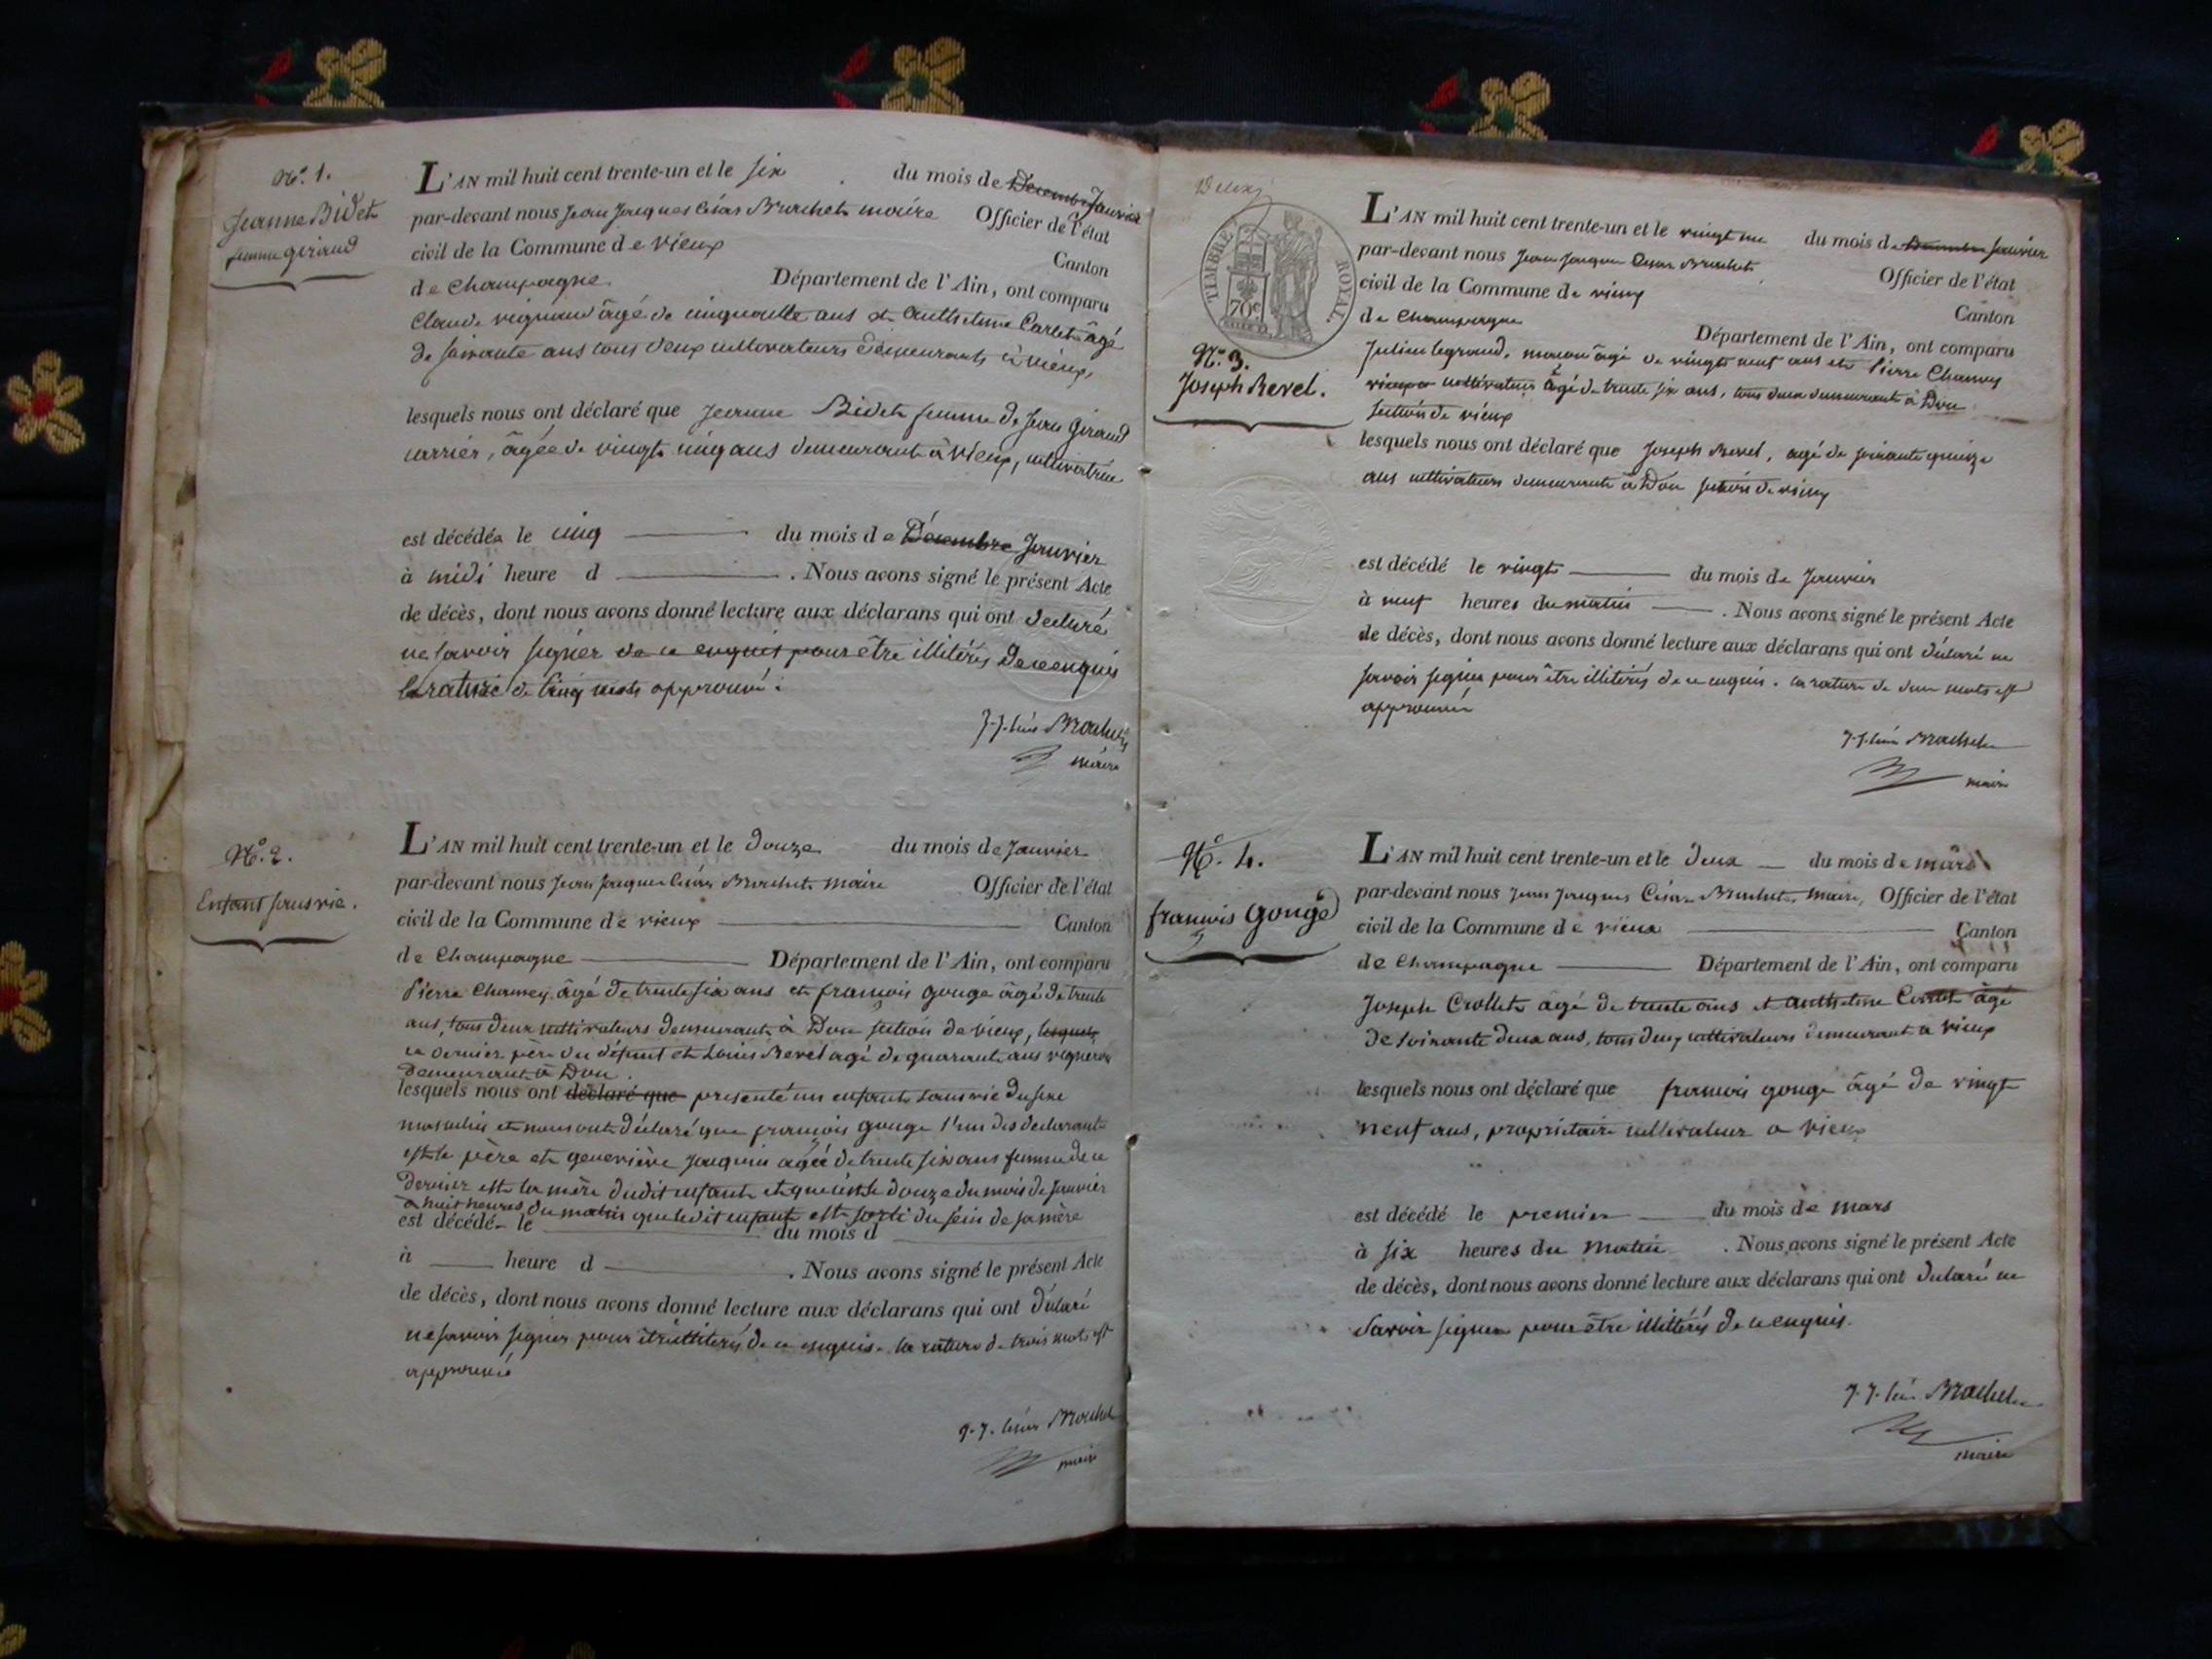 N.o 1.
Jeanne Bidet
femme giraud
L'AN mil huit cent trente-un et le six du mois de Décembre Janvier
par-devant nous Jean Jacques César Brachet maire Officier de l'état
civil de la Commune de vieux Canton
de Champagne Département de l'Ain, ont comparu
Claude vignaud âgé de cinquante ans et Anthelme Carlet âgé
de soixante ans tous deux cultivateurs demeurants à vieux,
lesquels nous ont déclaré que Jeanne Bidet femme de Jean Giraud
carrier, âgée de vingt cinq ans demeurant à vieux, cultivatrice
est décédée le cinq du mois de Décembre Janvier
à midi heure d . Nous avons signé le présent Acte
de décès, dont nous avons donné lecture aux déclarans qui ont déclaré
ne savoir signer de ce enquis pour être illitérés de ce enquis
la rature de cinq mots approuvé :
J. J. César Brachet
maire
N.o 2.
Enfant sans vie.
L'AN mil huit cent trente-un et le douze du mois de Janvier
par-devant nous Jean Jacques César Brachet maire Officier de l'état
civil de la Commune de vieux Canton
de Champagne Département de l'Ain, ont comparu
Pierre Chamey âgé de trente six ans et françois gouge âgé de trente
ans, tous deux cultivateurs demeurant à Don section de vieux, lesquels
ce dernier père du défunt et Louis Revel agé de quarante ans vigneron
demeurant à Don.
lesquels nous ont déclaré que présenté un enfant sans vie du sexe
masculin et nous ont déclaré que françois gouge l'un des déclarants
est le père et geneviève Jacquin agée de trente six ans femme de ce
dernier est la mère dudit enfant et que c'est le douze du mois de Janvier
à huit heures du matin que ledit enfant est sorti du sein de sa mère
est décédé le du mois d
à heure d . Nous avons signé le présent Acte
de décès, dont nous avons donné lecture aux déclarans qui ont déclaré
ne savoir signer pour être illitérés de ce enquis. la rature de trois mots est
approuvé
J. J. César Brachet
maire
TIMBRE ROYAL.
70c
N.o 3.
Joseph Revel.
L'AN mil huit cent trente-un et le vingt un du mois de Décembre Janvier
par-devant nous Jean Jacques César Brachet Officier de l'état
civil de la Commune de vieux Canton
de Champagne Département de l'Ain, ont comparu
Julien legrand, maçon âgé de vingt neuf ans et Pierre Chamey
cultivateur âgé de trente six ans, tous deux demeurant à Don
section de vieux
lesquels nous ont déclaré que Joseph Revel, agé de soixante quinze
ans cultivateur demeurant à Don section de vieux
est décédé le vingt du mois de Janvier
à neuf heures du matin . Nous avons signé le présent Acte
de décès, dont nous avons donné lecture aux déclarans qui ont déclaré ne
savoir signer pour être illitérés de ce enquis. la rature de deux mots est
approuvée
J. J. César Brachet
maire
N.o 4.
françois Gouge
L'AN mil huit cent trente-un et le deux du mois de mars
par-devant nous Jean Jacques César Brachet, maire, Officier de l'état
civil de la Commune de vieux Canton
de Champagne Département de l'Ain, ont comparu
Joseph Crollet âgé de trente ans et Anthelme Carlet âgé
de soixante deux ans, tous deux cultivateurs demeurant à vieux
lesquels nous ont déclaré que françois gouge âgé de vingt
neuf ans, propriétaire cultivateur a vieux
est décédé le premier du mois de mars
à six heures du matin . Nous avons signé le présent Acte
de décès, dont nous avons donné lecture aux déclarans qui ont déclaré ne
savoir signer pour être illittérés de ce enquis.
J. J. César Brachet
maire